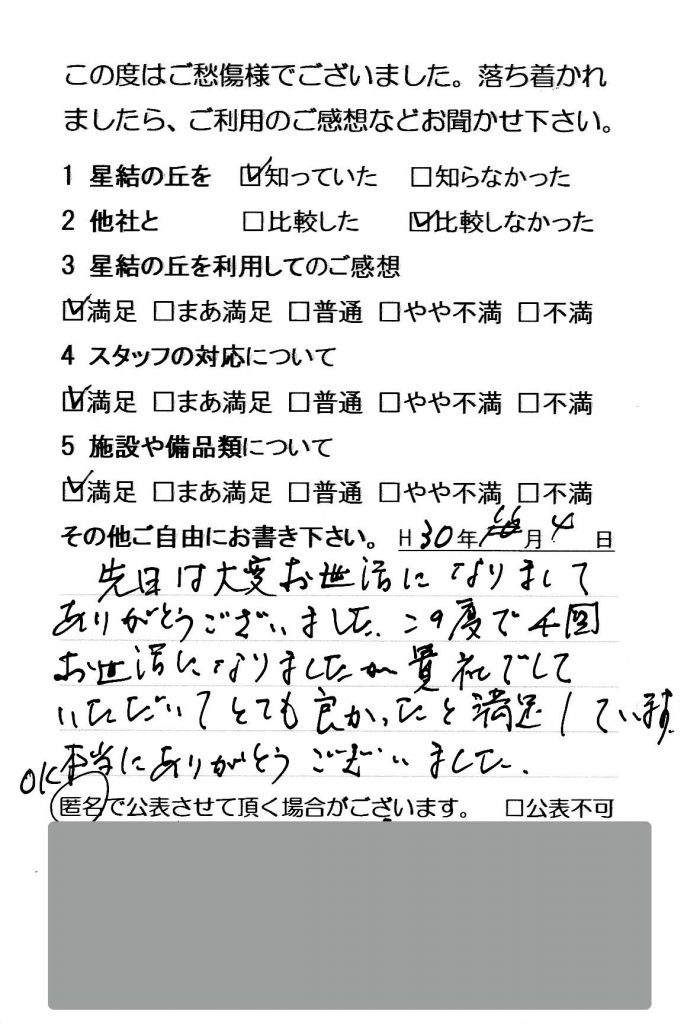 この度はご愁傷様でございました。落ち着かれ
ましたら、ご利用のご感想などお聞かせ下さい。
1 星結の丘を ☑知っていた □知らなかった
2 他社と □比較した ☑比較しなかった
3 星結の丘を利用してのご感想
☑満足 □まあ満足 □普通 □やや不満 □不満
4 スタッフの対応について
☑満足 □まあ満足 □普通 □やや不満 □不満
5 施設や備品類について
☑満足 □まあ満足 □普通 □やや不満 □不満
その他ご自由にお書き下さい。 H 30年 月 4 日
先日は大変お世話になりまして
ありがとうございました. この度で4回
お世話になりましたが貴社でして
いただいてとても良かったと満足しています
本当にありがとうございました.
OK
匿名で公表させて頂く場合がございます。 □公表不可